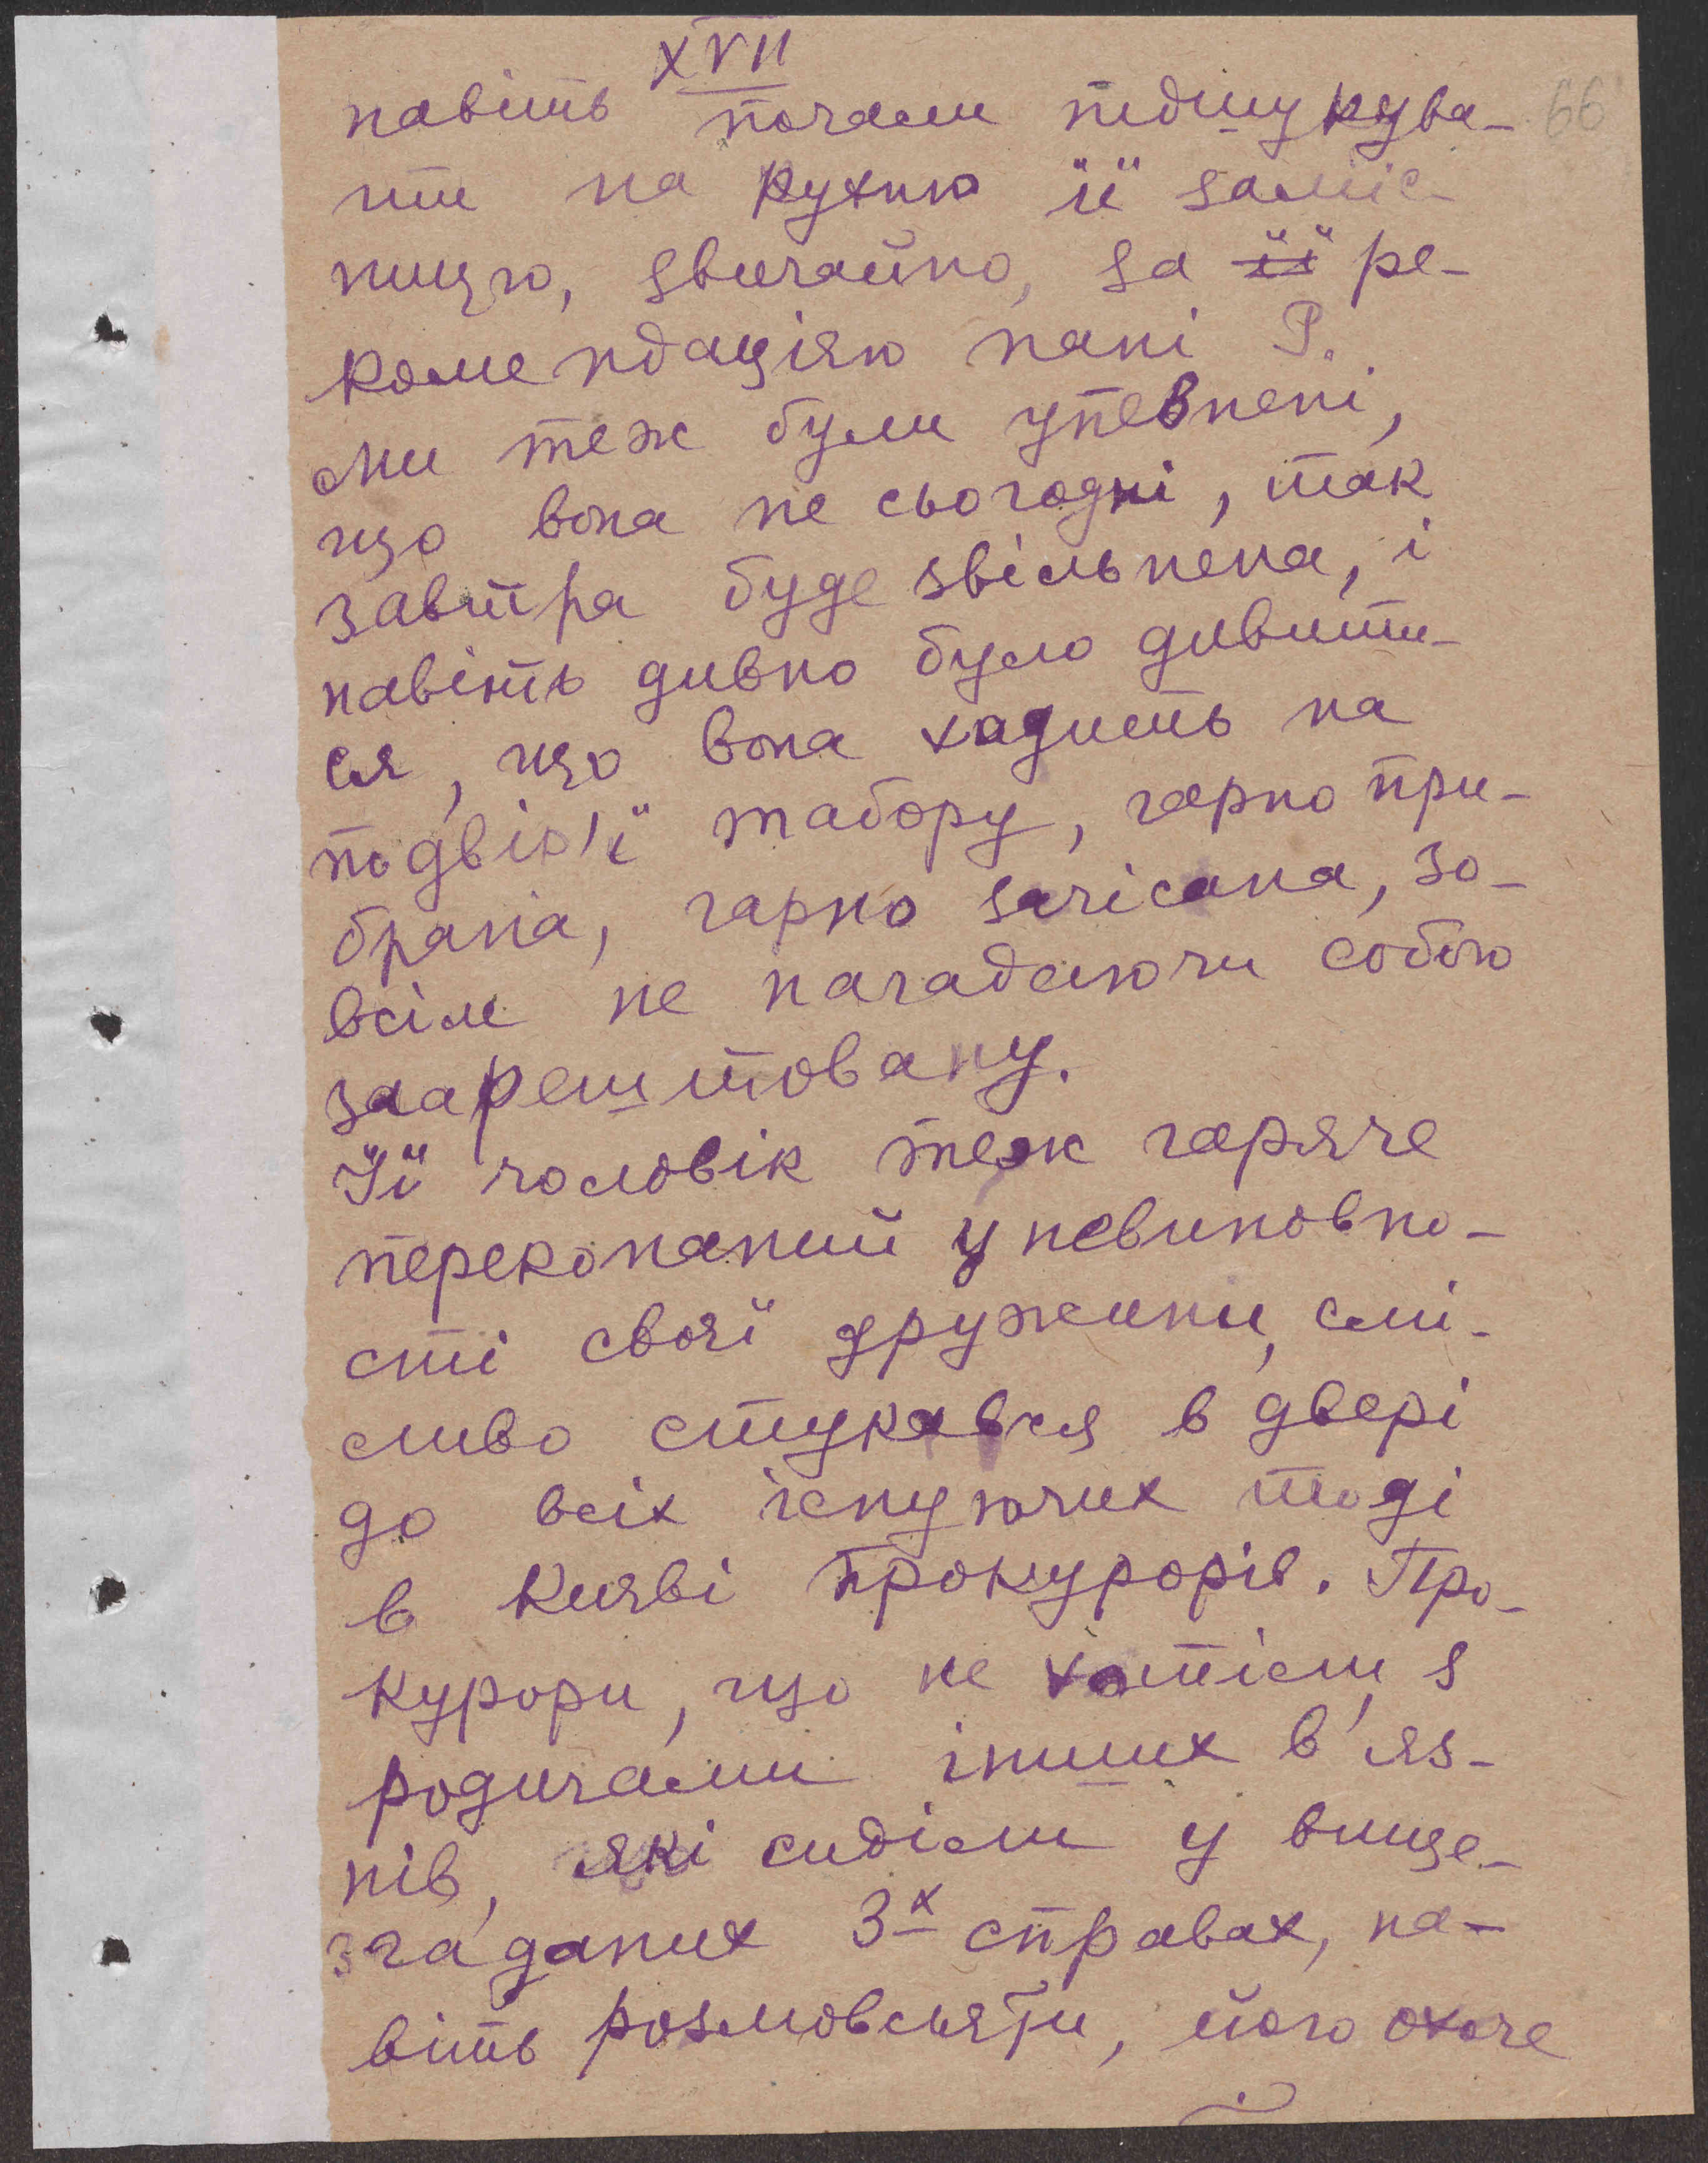 XVII
навіть почали підшукува-
66
ти на кухню її заміс-
ницю, звичайно, за її ре-
комендацією пані Р.
Ми теж були упевнені,
що вона не сьогодні, так
завтра буде звільнена, і
навіть дивно було дивити-
ся, що вона ходить на
подвір'ї табору, гарно при-
брана, гарно зачісана, зо-
всім не нагадаючи собою
заарештовану.
Її чоловік теж гаряче
переконаний у невиновно-
сті своєї дружини, смі-
ливо стукався в двері
до всіх існуючих тоді
в Києві прокурорів. Про-
курори, що не хотіли з
родичами інших в'яз-
нів, які сиділи у вище-
згаданих 3х справах, на-
віть розмовляти, його охоче